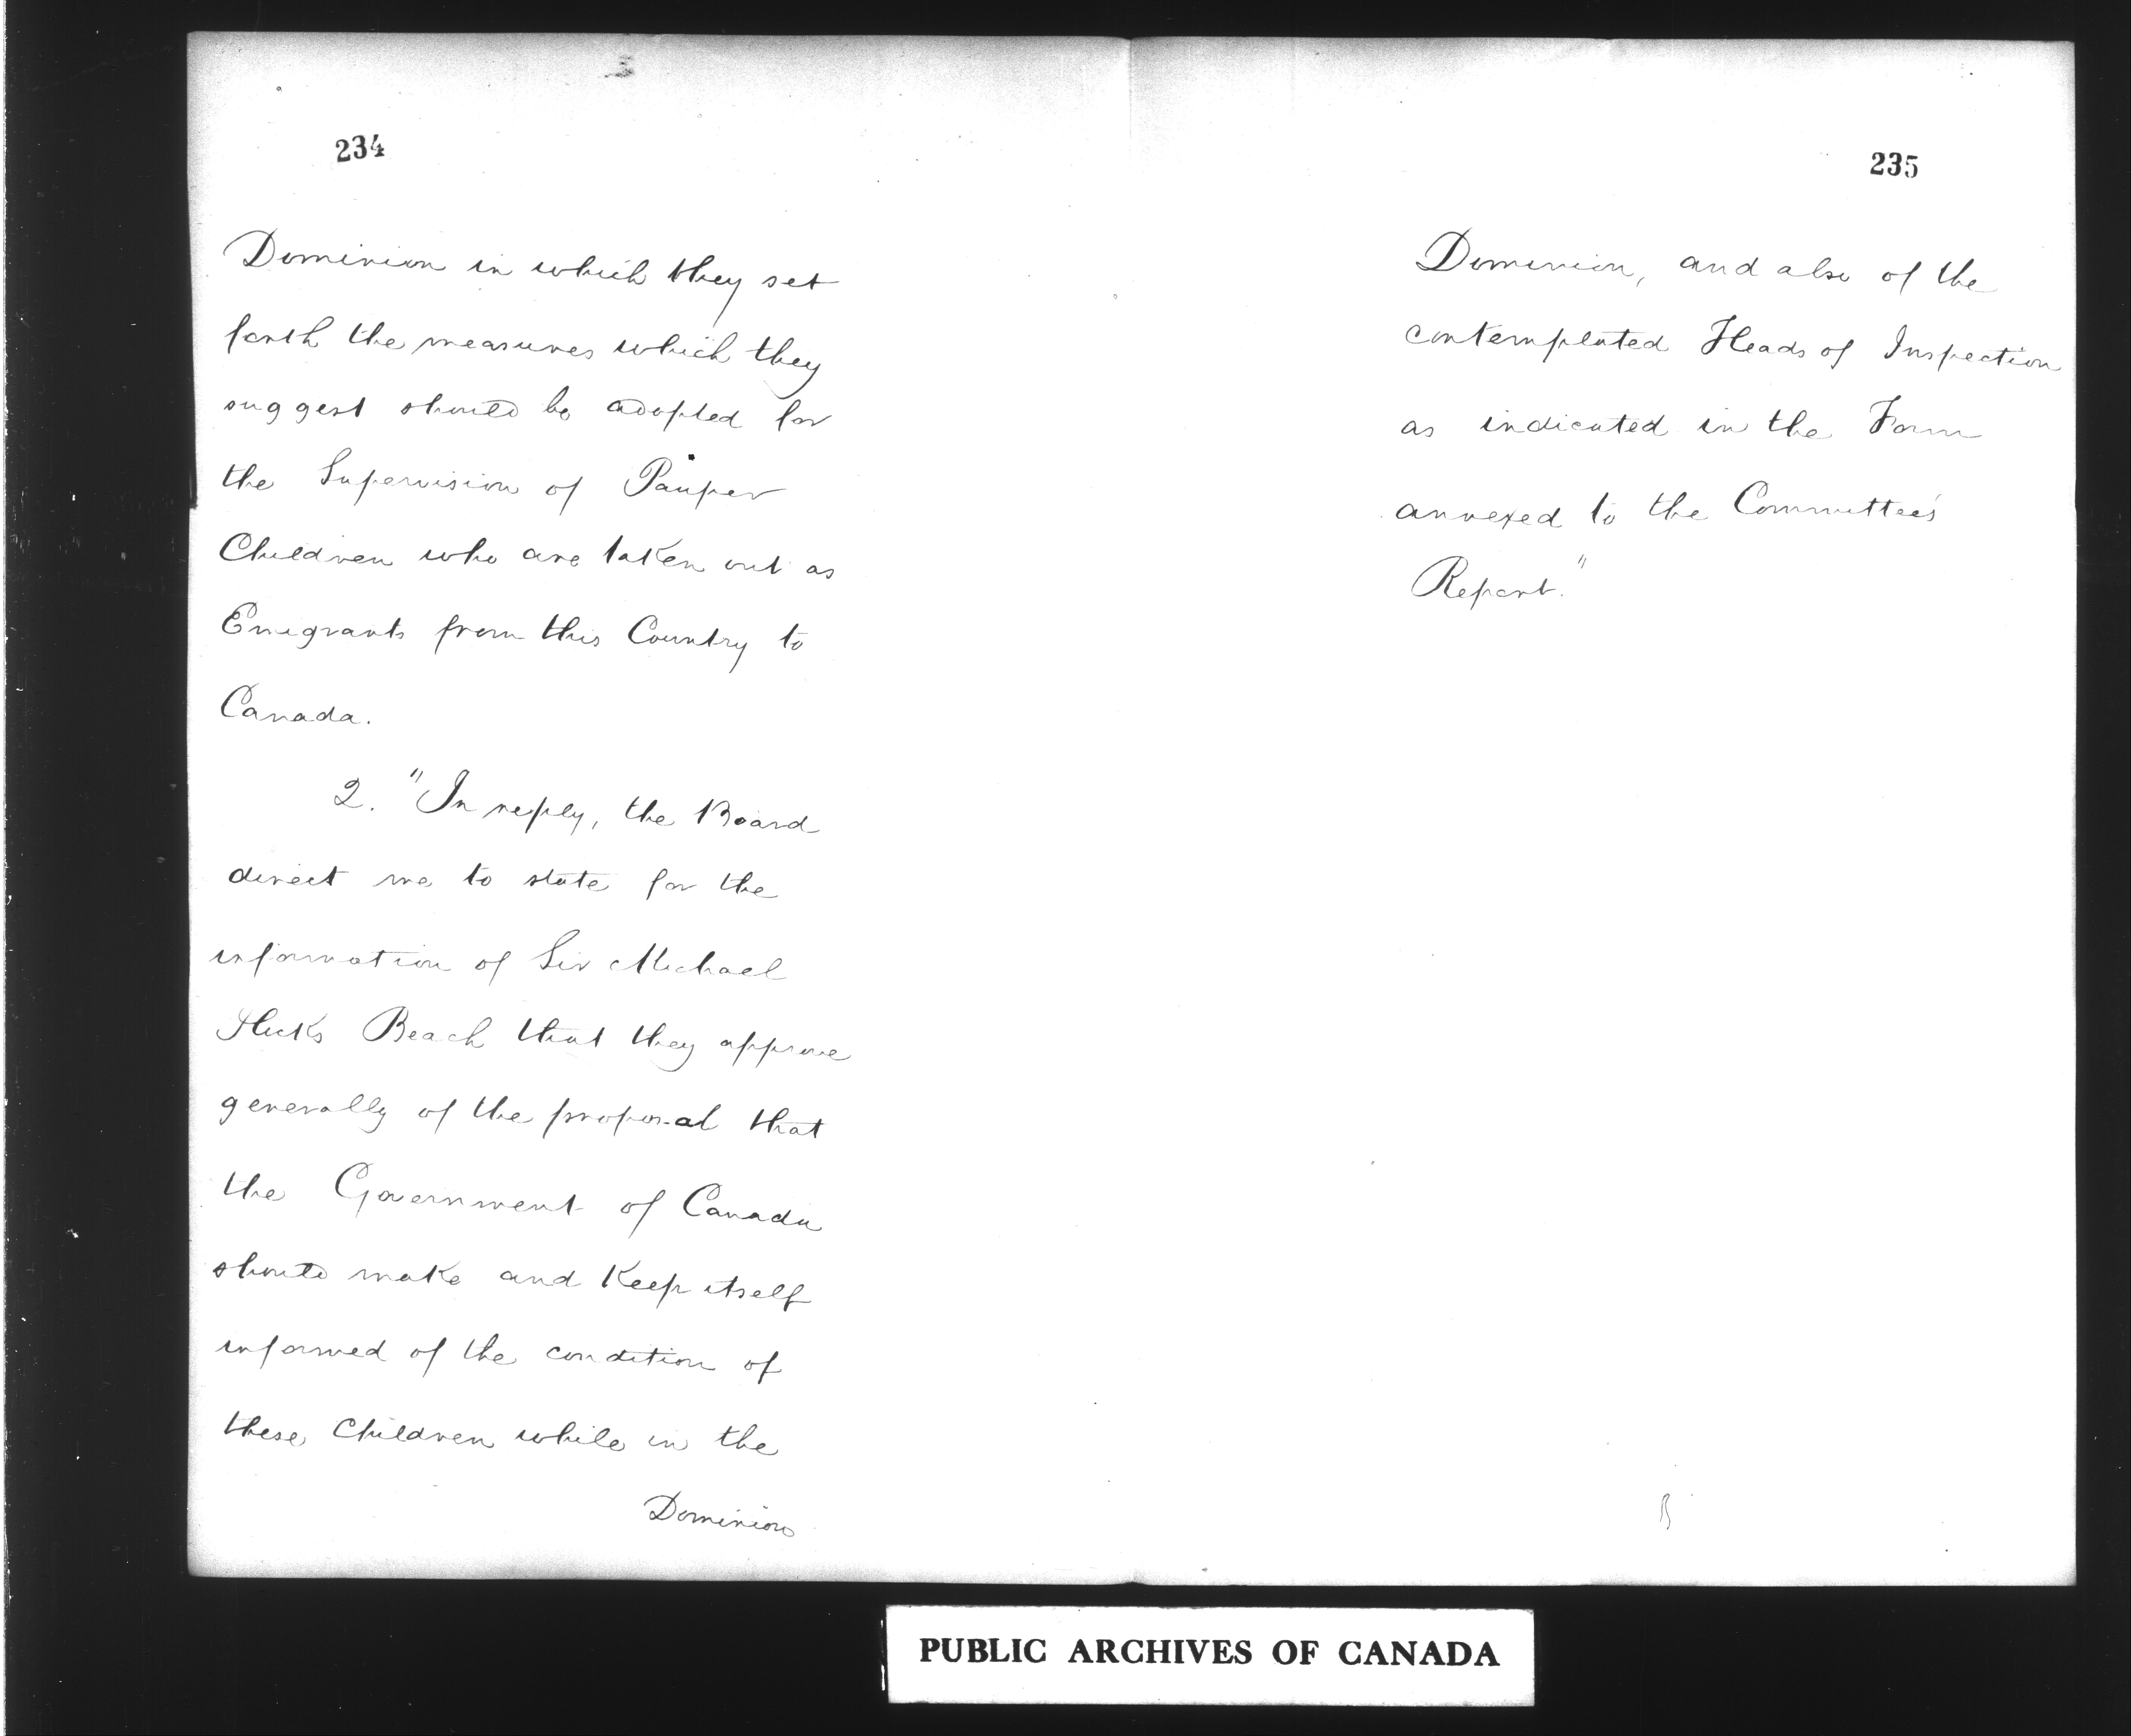 234
Dominion in which they set
forth the measures which they
suggest should be adopted for
the Supervision of Pauper
Children who are taken out as
Emigrants from this Country to
Canada.
2. "In reply, the Board
direct me to state for the
information of Sir Michael
Hicks Beach that they approve
generally of the proposal that
the Government of Canada
should make and Keep itself
informed of the condition of
these Children while in the
Dominion
235
Dominion, and also of the
contemplated Heads of Inspection
as indicated in the Form
annexed to the Committee's
Report."
PUBLIC ARCHIVES OF CANADA